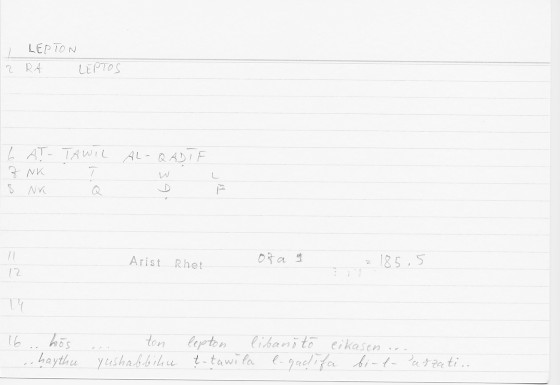 1 LEPTON
2 RA LEPTOS
6 AṬ-ṬAWĪL AL-QAḌĪF
7 NK Ṭ W L
8 NK Q Ḍ F
11 Arist Rhet 07a 1 = 185.5
12
14
16 .. hōs ... ton lepton libanōtō eikasen ...
.. ḥaythu yushabbihu ṭ-ṭawīla l-qaḍīfa bi-l-'arzati ..